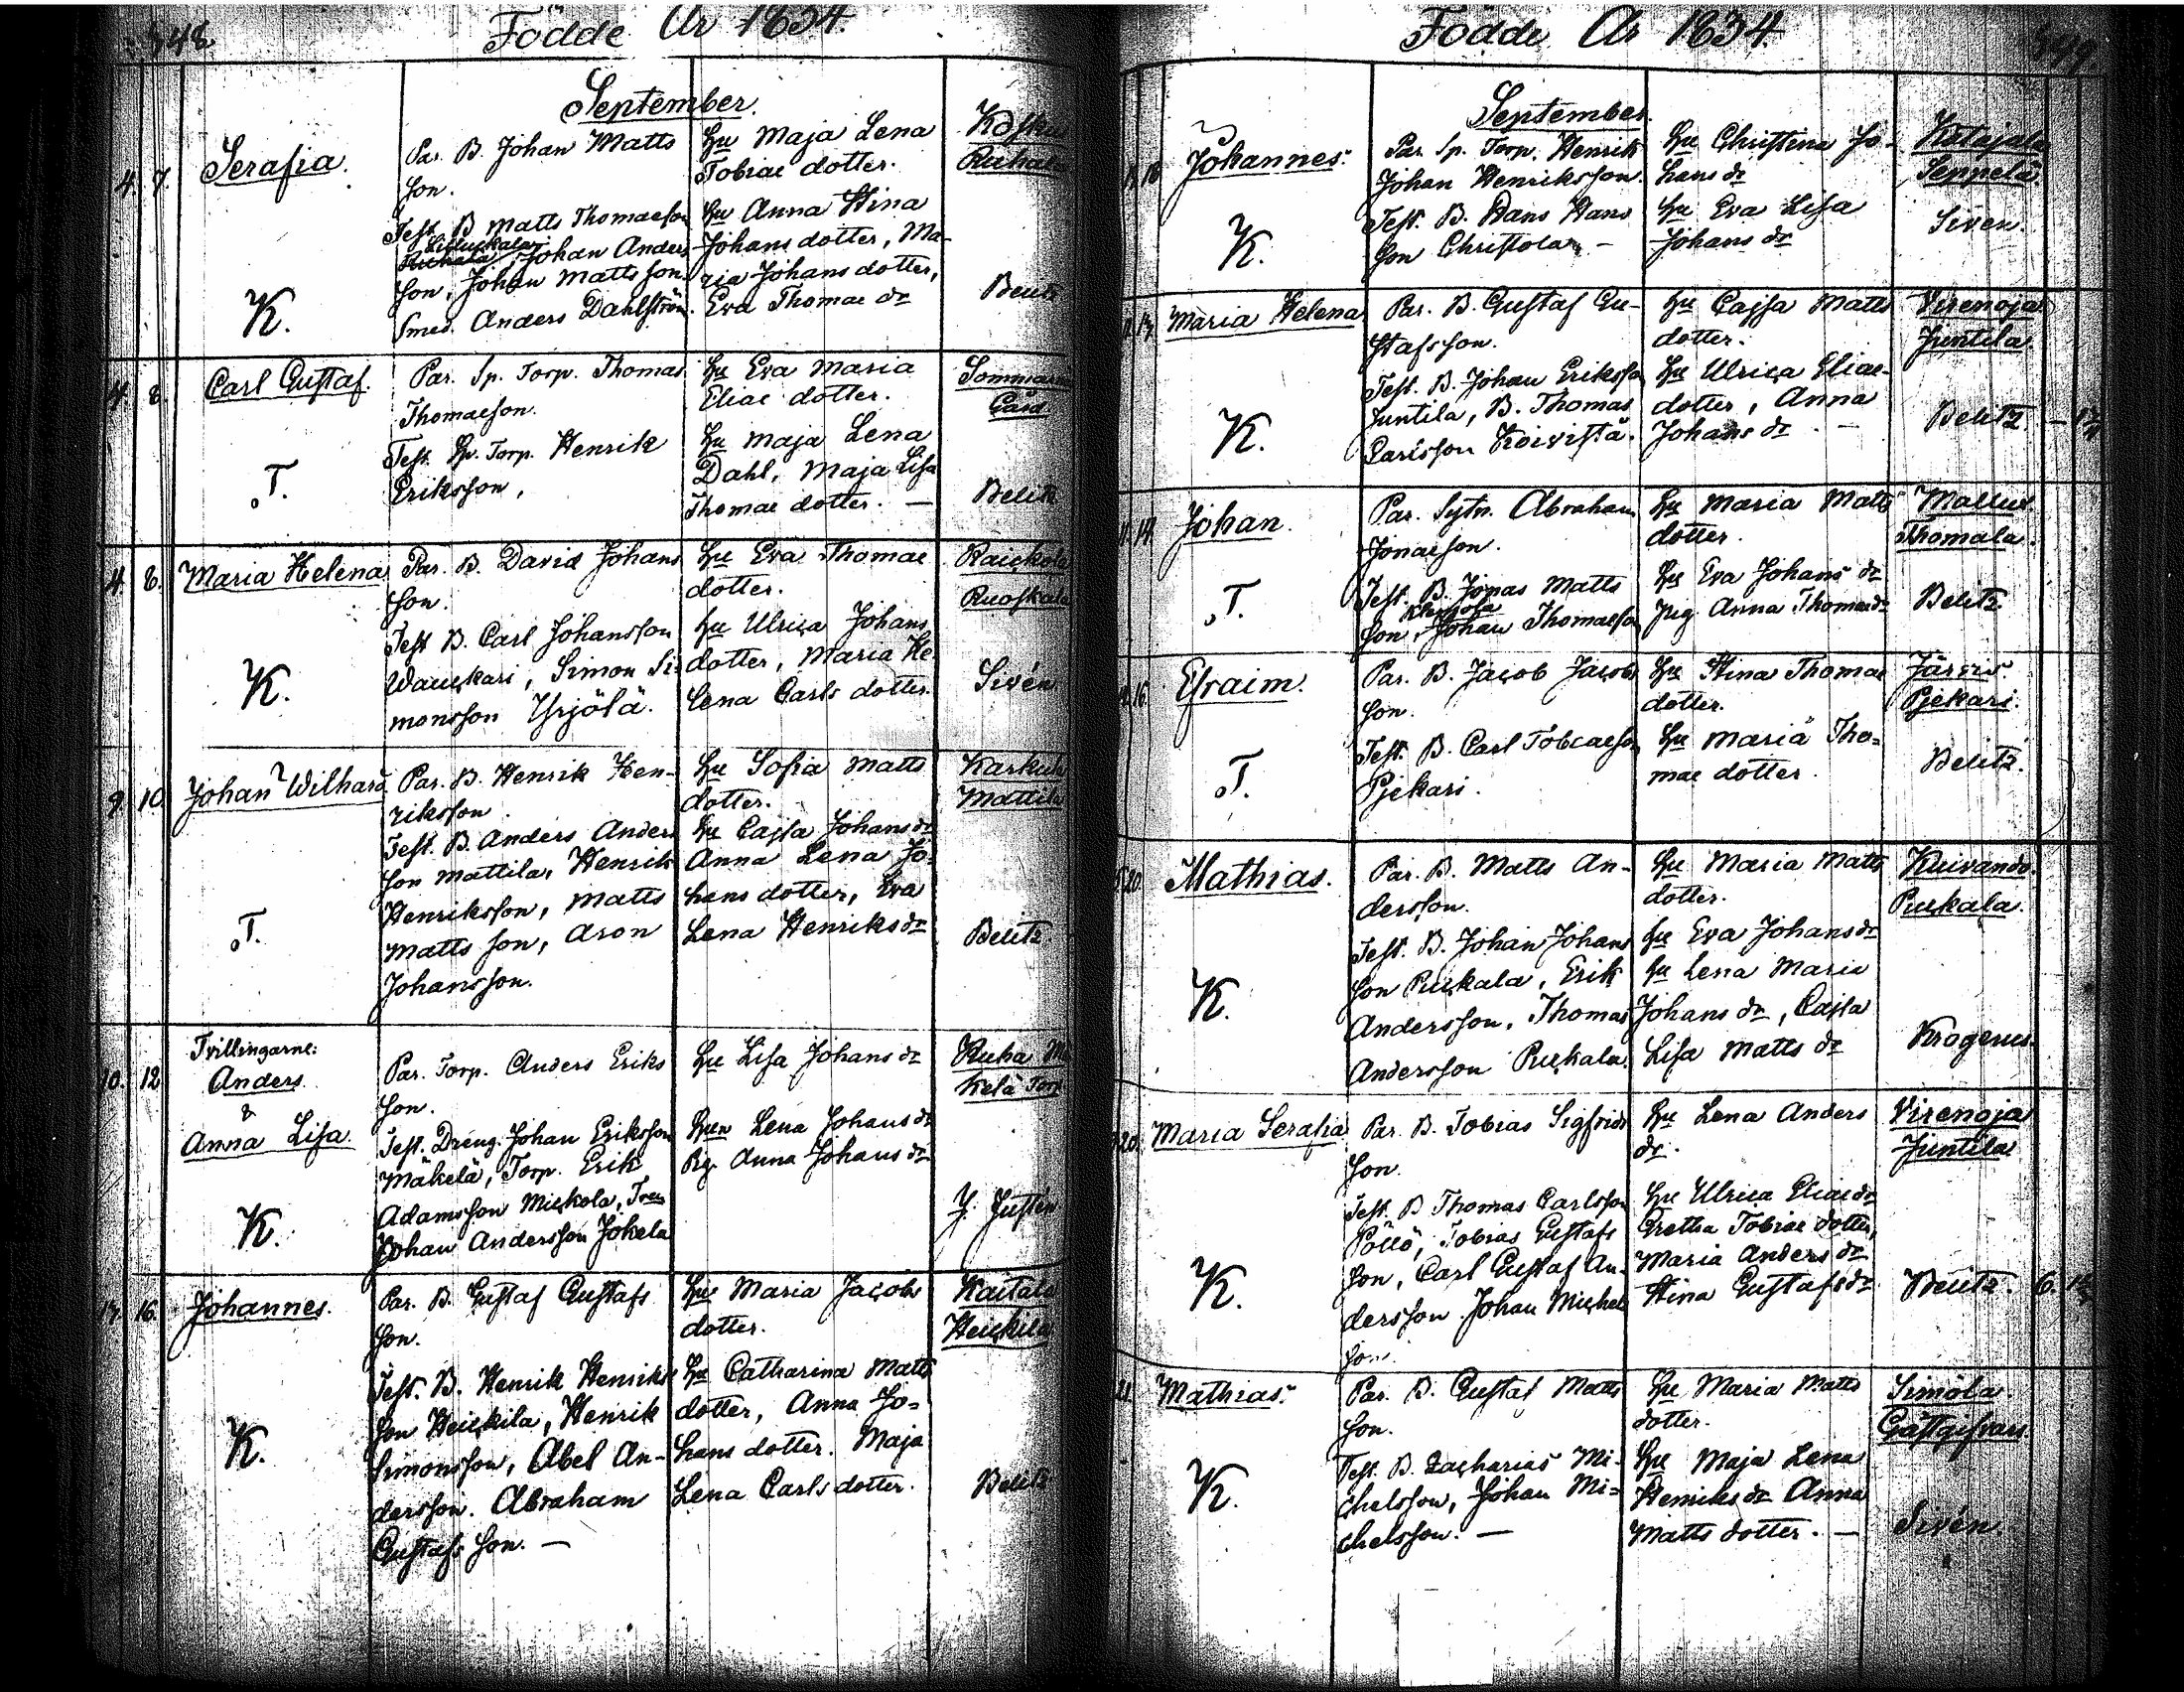 548.
Födde År 1834.
September.
4. 7. Serafia.
Par. B. Johan Matts
son.
Test. B Matts Thomaeson
Johan Anders
son, Johan Mattsson
Smed. Anders Dahlström.
Hu Maja Lena
Tobiae dotter.
Hu Anna Stina
Johans dotter, Ma-
ria Johans dotter,
Eva Thomae dr
Koski
Ruhala
K.
Belitz
4. 8. Carl Gustaf.
Par. Sp. Torp. Thomas
Thomaeson.
Test. Sp. Torp. Henrik
Eriksson,
Hu Eva Maria
Eliae dotter.
Hu Maja Lena
Dahl, Maja Lisa
Thomae dotter. —
Gård
T.
Belitz
4. 8. Maria Helena
Par. B. David Johans
son.
Test B. Carl Johansson
Wauckari, Simon Si-
monsson Yrjölä.
Hu Eva Thomae
dotter.
Hu Ulrica Johans
dotter, Maria He
lena Carls dotter.
Raickola
Ruoskala
K.
Sivén
9. 10. Johan Wilhard
Par. B. Henrik Hen-
riksson
Test. B. Anders Anders
son Mattila, Henrik
Henriksson, Matts
Matts son, Aron
Johansson.
Hu Sofia Matts
dotter.
Hu Cajsa Johans dr
Anna Lena Jo-
hans dotter, Eva
Lena Henriks dr
Mattila
T.
Belitz
10. 12 Tvillingarne:
Anders
&
Anna Lisa.
Par. Torp. Anders Eriks
son.
Test. Dreng. Johan Eriksson
Mäkelä, Torp. Erik
Adamsson Mickola,
Johan Andersson Jokela
Hu Lisa Johans dr
Lena Johans dr
Pig. Anna Johans dr
Ruha Mä
kelä Torp
K.
Y. Justén
13. 16. Johannes.
Par. B. Gustaf Gustafs
son.
Test. B. Henrik Henriks
son Heickila, Henrik
Simonsson, Abel An-
dersson. Abraham
Gustafs son. —
Hu Maria Jacobs
dotter.
Hu Catharina Matts
dotter, Anna Jo-
hans dotter. Maja
Lena Carls dotter.
Kaitala
Heickila
K.
Belitz
549.
Födde År 1834.
September.
Johannes.
Par. Sp. Torp. Henrik
Johan Henriksson.
Test. B. Hans Hans
son Christola —
Hu Christina Jo-
hans dr
Hu Eva Lisa
Johans dr
Ketajala
Seppelä
K.
Siven.
Maria Helena
Par. B. Gustaf Gu-
stafsson.
Test. B. Johan Eriksson
Juntila, B. Thomas
Carlsson Koivistå.
Hu Cajsa Matts
dotter.
Hu Ulrica Eliae-
dotter, Anna
Johans dr. —
Virenoja
Juntila
K.
Belitz
14. Johan.
Par. Sytn. Abraham
Jonaeson.
Test. B. Jonas Matts
son, Johan Thomaeson
Hu Maria Matts
dotter.
Hu Eva Johans dr
Pig Anna Thomae dr
Mallus
Thomala.
T.
Belitz
16. Efraim.
Par. B. Jacob Jacobs
son.
Test. B. Carl Tobiaeson
Pjekari.
Hu Stina Thomae
dotter.
Hu Maria Tho-
mae dotter.
Järvis
Pjekari.
T.
Belitz.
20. Mathias.
Par. B. Matts An-
dersson.
Test. B. Johan Johans
son Puckala, Erik
Andersson, Thomas
Andersson Puckala.
Hu Maria Matts
dotter.
Hu Eva Johans dr
Hu Lena Maria
Johans dr, Cajsa
Lisa Matts dr
Kuivando
Puckala.
K.
Krogerus.
20. Maria Serafia
Par. B. Tobias Sigfrids
son.
Test. B Thomas Carlsson
Pöllö, Tobias Gustafs
son, Carl Gustaf An-
dersson Johan Michels
son.
Hu Lena Anders
dr.
Hu Ulrica Eliae dr
Gretha Tobiae dotter,
Maria Anders dr
Stina Gustafs dr
Virenoja
Juntila
K.
Belitz. 6.
21. Mathias.
Par. B. Gustaf Matts
son.
Test. B. Zacharias Mi-
chelsson, Johan Mi-
chelsson. —
Hu Maria Matts
dotter.
Hu Maja Lena
Henriks dr Anna
Matts dotter. —
Simola
Gästgifvars
K.
Sivén